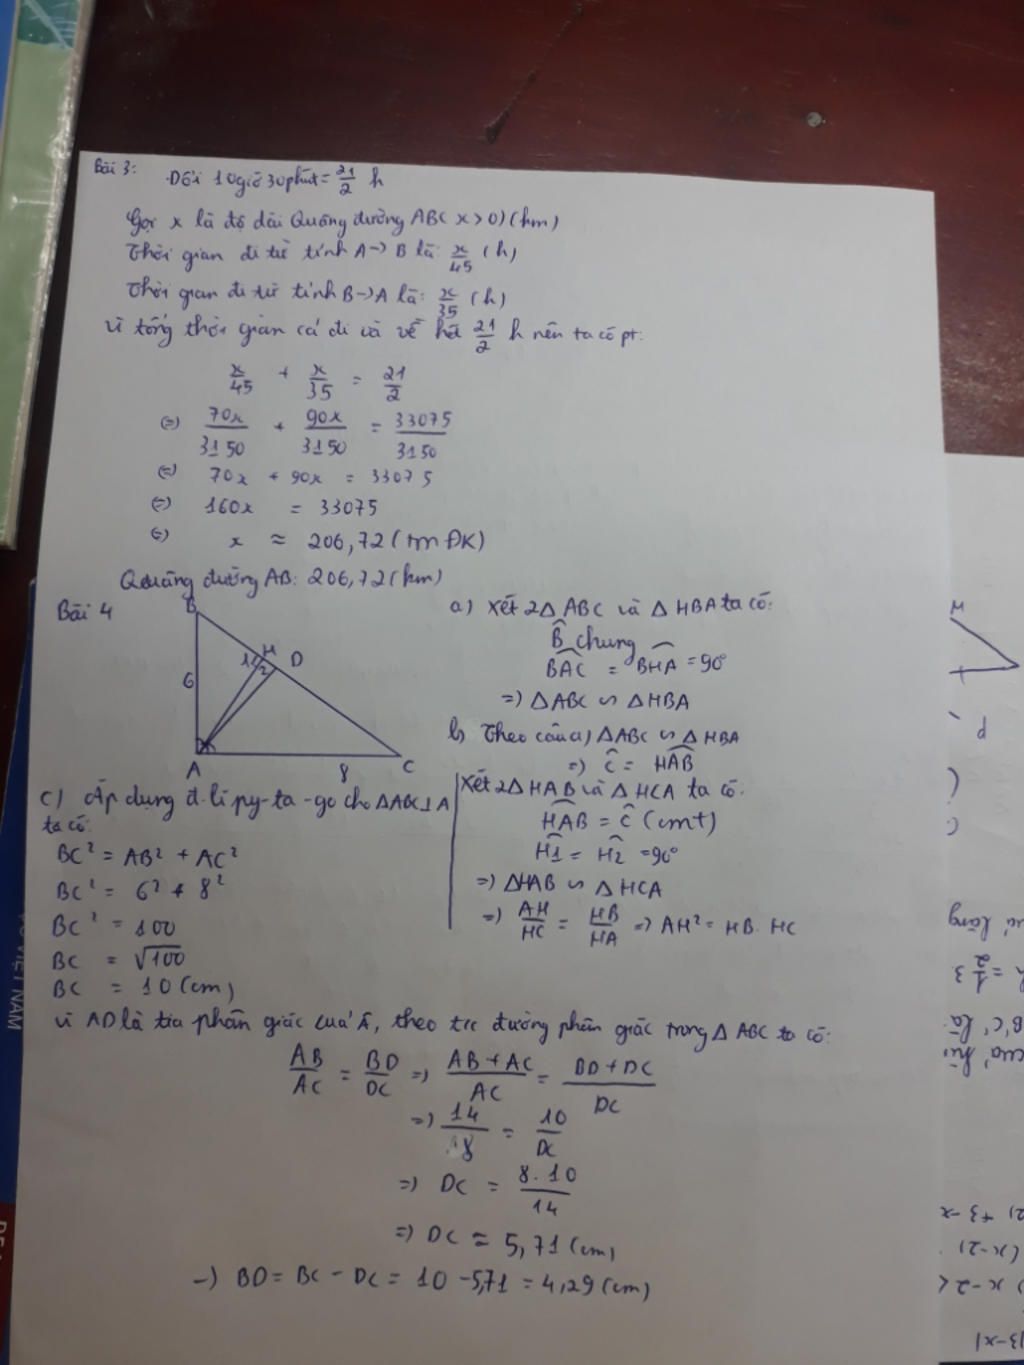 Bài 3:
Đổi 10giờ 30phút = 21/2 h
Gọi x là độ dài Quãng đường AB ( x > 0) (km)
Thời gian đi từ tỉnh A → B là: x/45 (h)
Thời gian đi từ tỉnh B → A là: x/35 (h)
Vì tổng thời gian cả đi và về hết 21/2 h nên ta có pt:
x/45 + x/35 = 21/2
(=) 70x/3150 + 90x/3150 = 33075/3150
(=) 70x + 90x = 33075
(=) 160x = 33075
(=) x ≈ 206,72 (tm ĐK)
Quãng đường AB: 206,72 (km)
Bài 4
B
H
D
1
2
6
A
8
C
a) Xét 2Δ ABC và Δ HBA ta có:
B̂ chung
BAC = BHA = 90°
=) Δ ABC ∽ Δ HBA
b) Theo câu a) Δ ABC ∽ Δ HBA
=) Ĉ = HAB
Xét 2Δ HAB và Δ HCA ta có:
HAB = Ĉ (cmt)
Ĥ1 = Ĥ2 = 90°
=) ΔHAB ∽ Δ HCA
=) AH/HC = HB/HA =) AH² = HB. HC
c) Áp dụng đ.lí py-ta-go cho ΔABC ⊥ A
ta có:
BC² = AB² + AC²
BC² = 6² + 8²
BC² = 100
BC = √100
BC = 10 (cm)
Vì AD là tia phân giác của Â, theo t/c đường phân giác trong Δ ABC ta có:
AB/AC = BD/DC =) AB + AC/AC = BD + DC/DC
=) 14/8 = 10/DC
=) DC = 8.10/14
=) DC = 5,71 (cm)
-) BD = BC - DC = 10 - 5,71 = 4,29 (cm)
VIỆT NAM